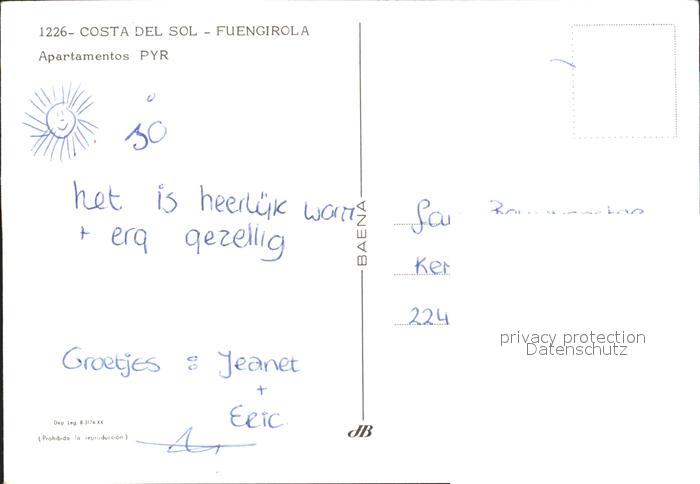 1226- COSTA DEL SOL - FUENGIROLA
Apartamentos PYR
30°
het is heerlijk warm
+ erg gezellig
Groetjes : Jeanet
+
Eric
Dep. Leg. B.
(Prohibida la reproducción)
BAENA
Fa
Ker
224
privacy protection
Datenschutz